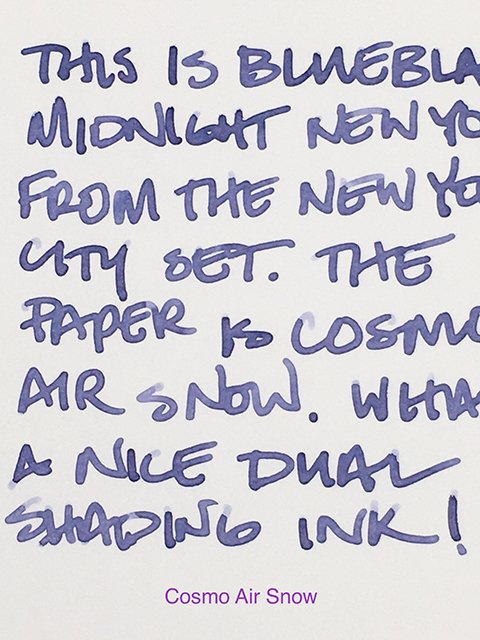 THIS IS BLUEBLA
MIDNIGHT NEW YO
FROM THE NEW YO
CITY SET. THE
PAPER IS COSMO
AIR SNOW. WHA
A NICE DUAL
SHADING INK!
Cosmo Air Snow